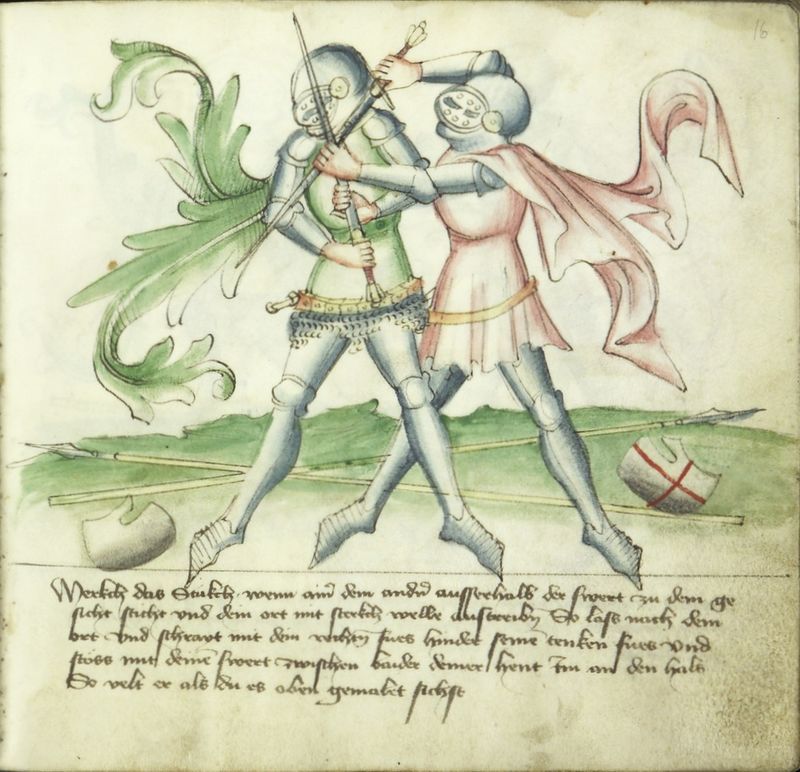 16
Merkch das Stukch wenn ainer dem andern ausserhalb der swert zu dem ge
sicht sticht vnd dem ort mit sterkch welle austreibn So lass nach dem
ort vnd schreyt mit dem rechtn fues hinder seinen tenken fues vnd
stoss mit deinem swert zwischen baider deiner hent Im an den hals
So velt er als du es oben gemalet sichst